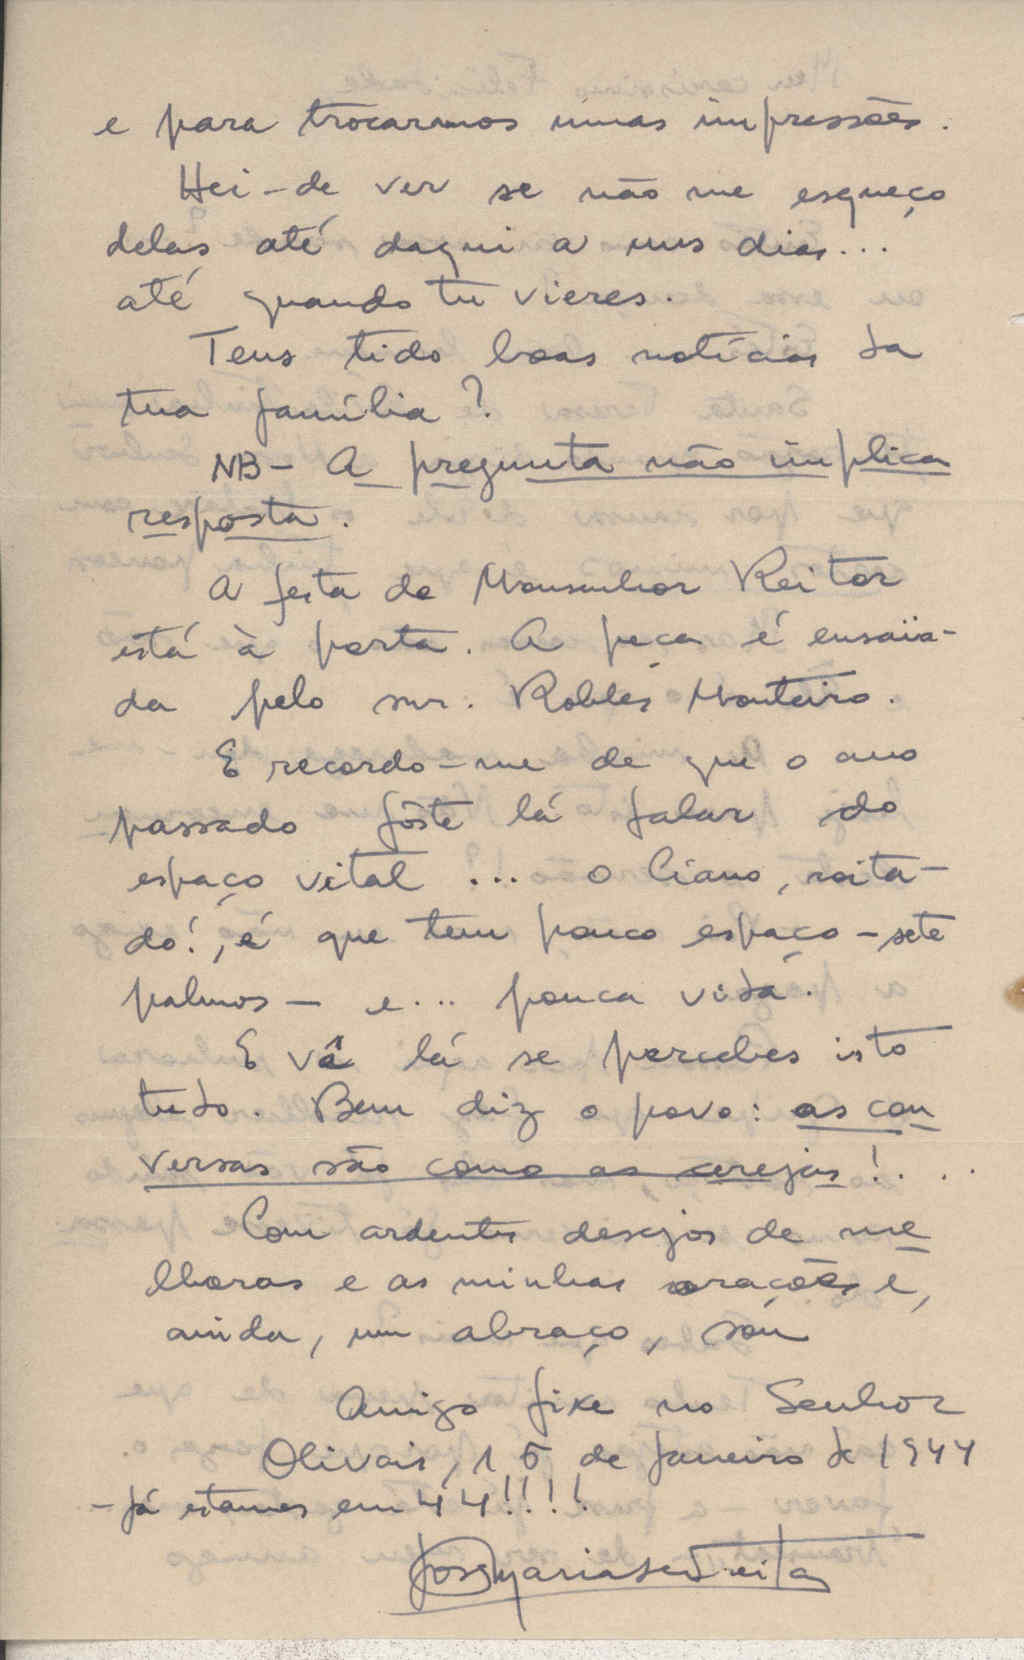 e para trocarmos umas impressões.
Hei-de ver se não me esqueço
delas até daqui a uns dias...
até quando tu vieres.
Tens tido boas notícias da
tua família?
NB- A pregunta não implica
resposta.
A festa de Monsenhor Reitor
está à porta. A peça é ensaia-
da pelo snr. Robles Monteiro.
E recordo-me de que o ano
passado fôste lá falar do
espaço vital ... O Ciano, coita-
do!, é que tem pouco espaço - sete
palmos - e... pouca vida.
E vê lá se percebes isto
tudo. Bem diz o povo: as con
versas são como as cerejas!...
Com ardentes desejos de me
lhoras e as minhas orações e,
ainda, um abraço, sou
Amigo fixe no Senhor
Olivais, 15 de Janeiro de 1944
- Já estamos em 44!!!!
José Maria de Freitas